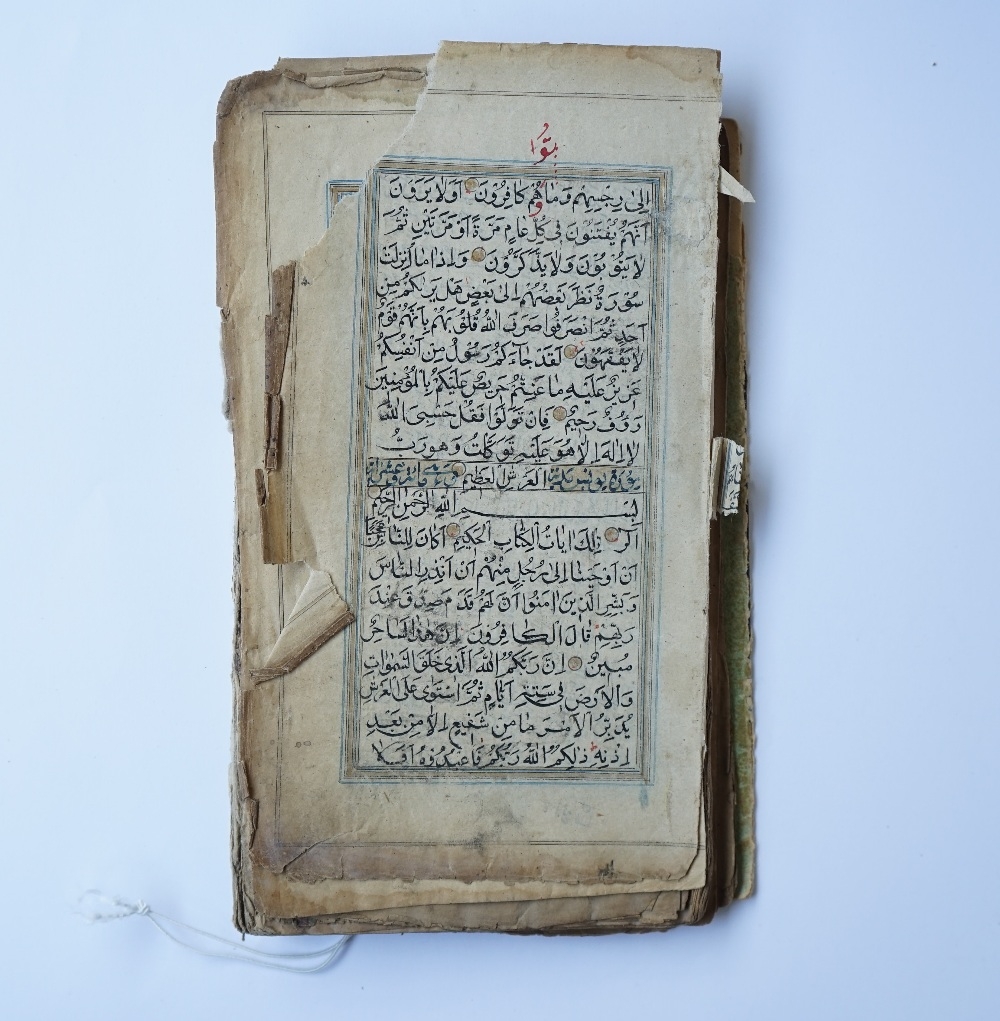 اِلىٰ رِجْسِهِمْ وَمَا هُمْ كَافِرُوْنَ اَوَلَا يَرَوْنَ
اَنَّهُمْ يُفْتَنُوْنَ فِى كُلِّ عَامٍ مَرَّةً اَوْ مَرَّتَيْنِ ثُمَّ
لَا يَتُوْبُوْنَ وَلَا يَذَّكَّرُوْنَ وَاِذَا مَا اُنْزِلَتْ
سُوْرَةٌ نَظَرَ بَعْضُهُمْ اِلىٰ بَعْضٍ هَلْ يَرٰيكُمْ مِنْ
اَحَدٍ ثُمَّ انْصَرَفُوا صَرَفَ اللّٰهُ قُلُوْبَهُمْ بِاَنَّهُمْ قَوْمٌ
لَا يَفْقَهُوْنَ لَقَدْ جَاءَكُمْ رَسُوْلٌ مِنْ اَنْفُسِكُمْ
عَزِيْزٌ عَلَيْهِ مَا عَنِتُّمْ حَرِيْصٌ عَلَيْكُمْ بِالْمُؤْمِنِيْنَ
رَؤُفٌ رَحِيْمٌ فَاِنْ تَوَلَّوْا فَقُلْ حَسْبِىَ اللّٰهُ
لَا اِلٰهَ اِلَّا هُوَ عَلَيْهِ تَوَكَّلْتُ وَهُوَ رَبُّ
سورة يونس الْعَرْشِ الْعَظِيْمِ
بِسْمِ اللّٰهِ الرَّحْمٰنِ الرَّحِيْمِ
الٓرٰ تِلْكَ اٰيَاتُ الْكِتَابِ الْحَكِيْمِ اَكَانَ لِلنَّاسِ عَجَبًا
اَنْ اَوْحَيْنَا اِلىٰ رَجُلٍ مِنْهُمْ اَنْ اَنْذِرِ النَّاسَ
وَبَشِّرِ الَّذِيْنَ اٰمَنُوْا اَنَّ لَهُمْ قَدَمَ صِدْقٍ عِنْدَ
رَبِّهِمْ قَالَ الْكَافِرُوْنَ اِنَّ هٰذَا لَسَاحِرٌ
مُبِيْنٌ اِنَّ رَبَّكُمُ اللّٰهُ الَّذِى خَلَقَ السَّمٰوَاتِ
وَالْاَرْضَ فِى سِتَّةِ اَيَّامٍ ثُمَّ اسْتَوٰى عَلَى الْعَرْشِ
يُدَبِّرُ الْاَمْرَ مَا مِنْ شَفِيْعٍ اِلَّا مِنْ بَعْدِ
اِذْنِهِ ذٰلِكُمُ اللّٰهُ رَبُّكُمْ فَاعْبُدُوْهُ اَفَلَا